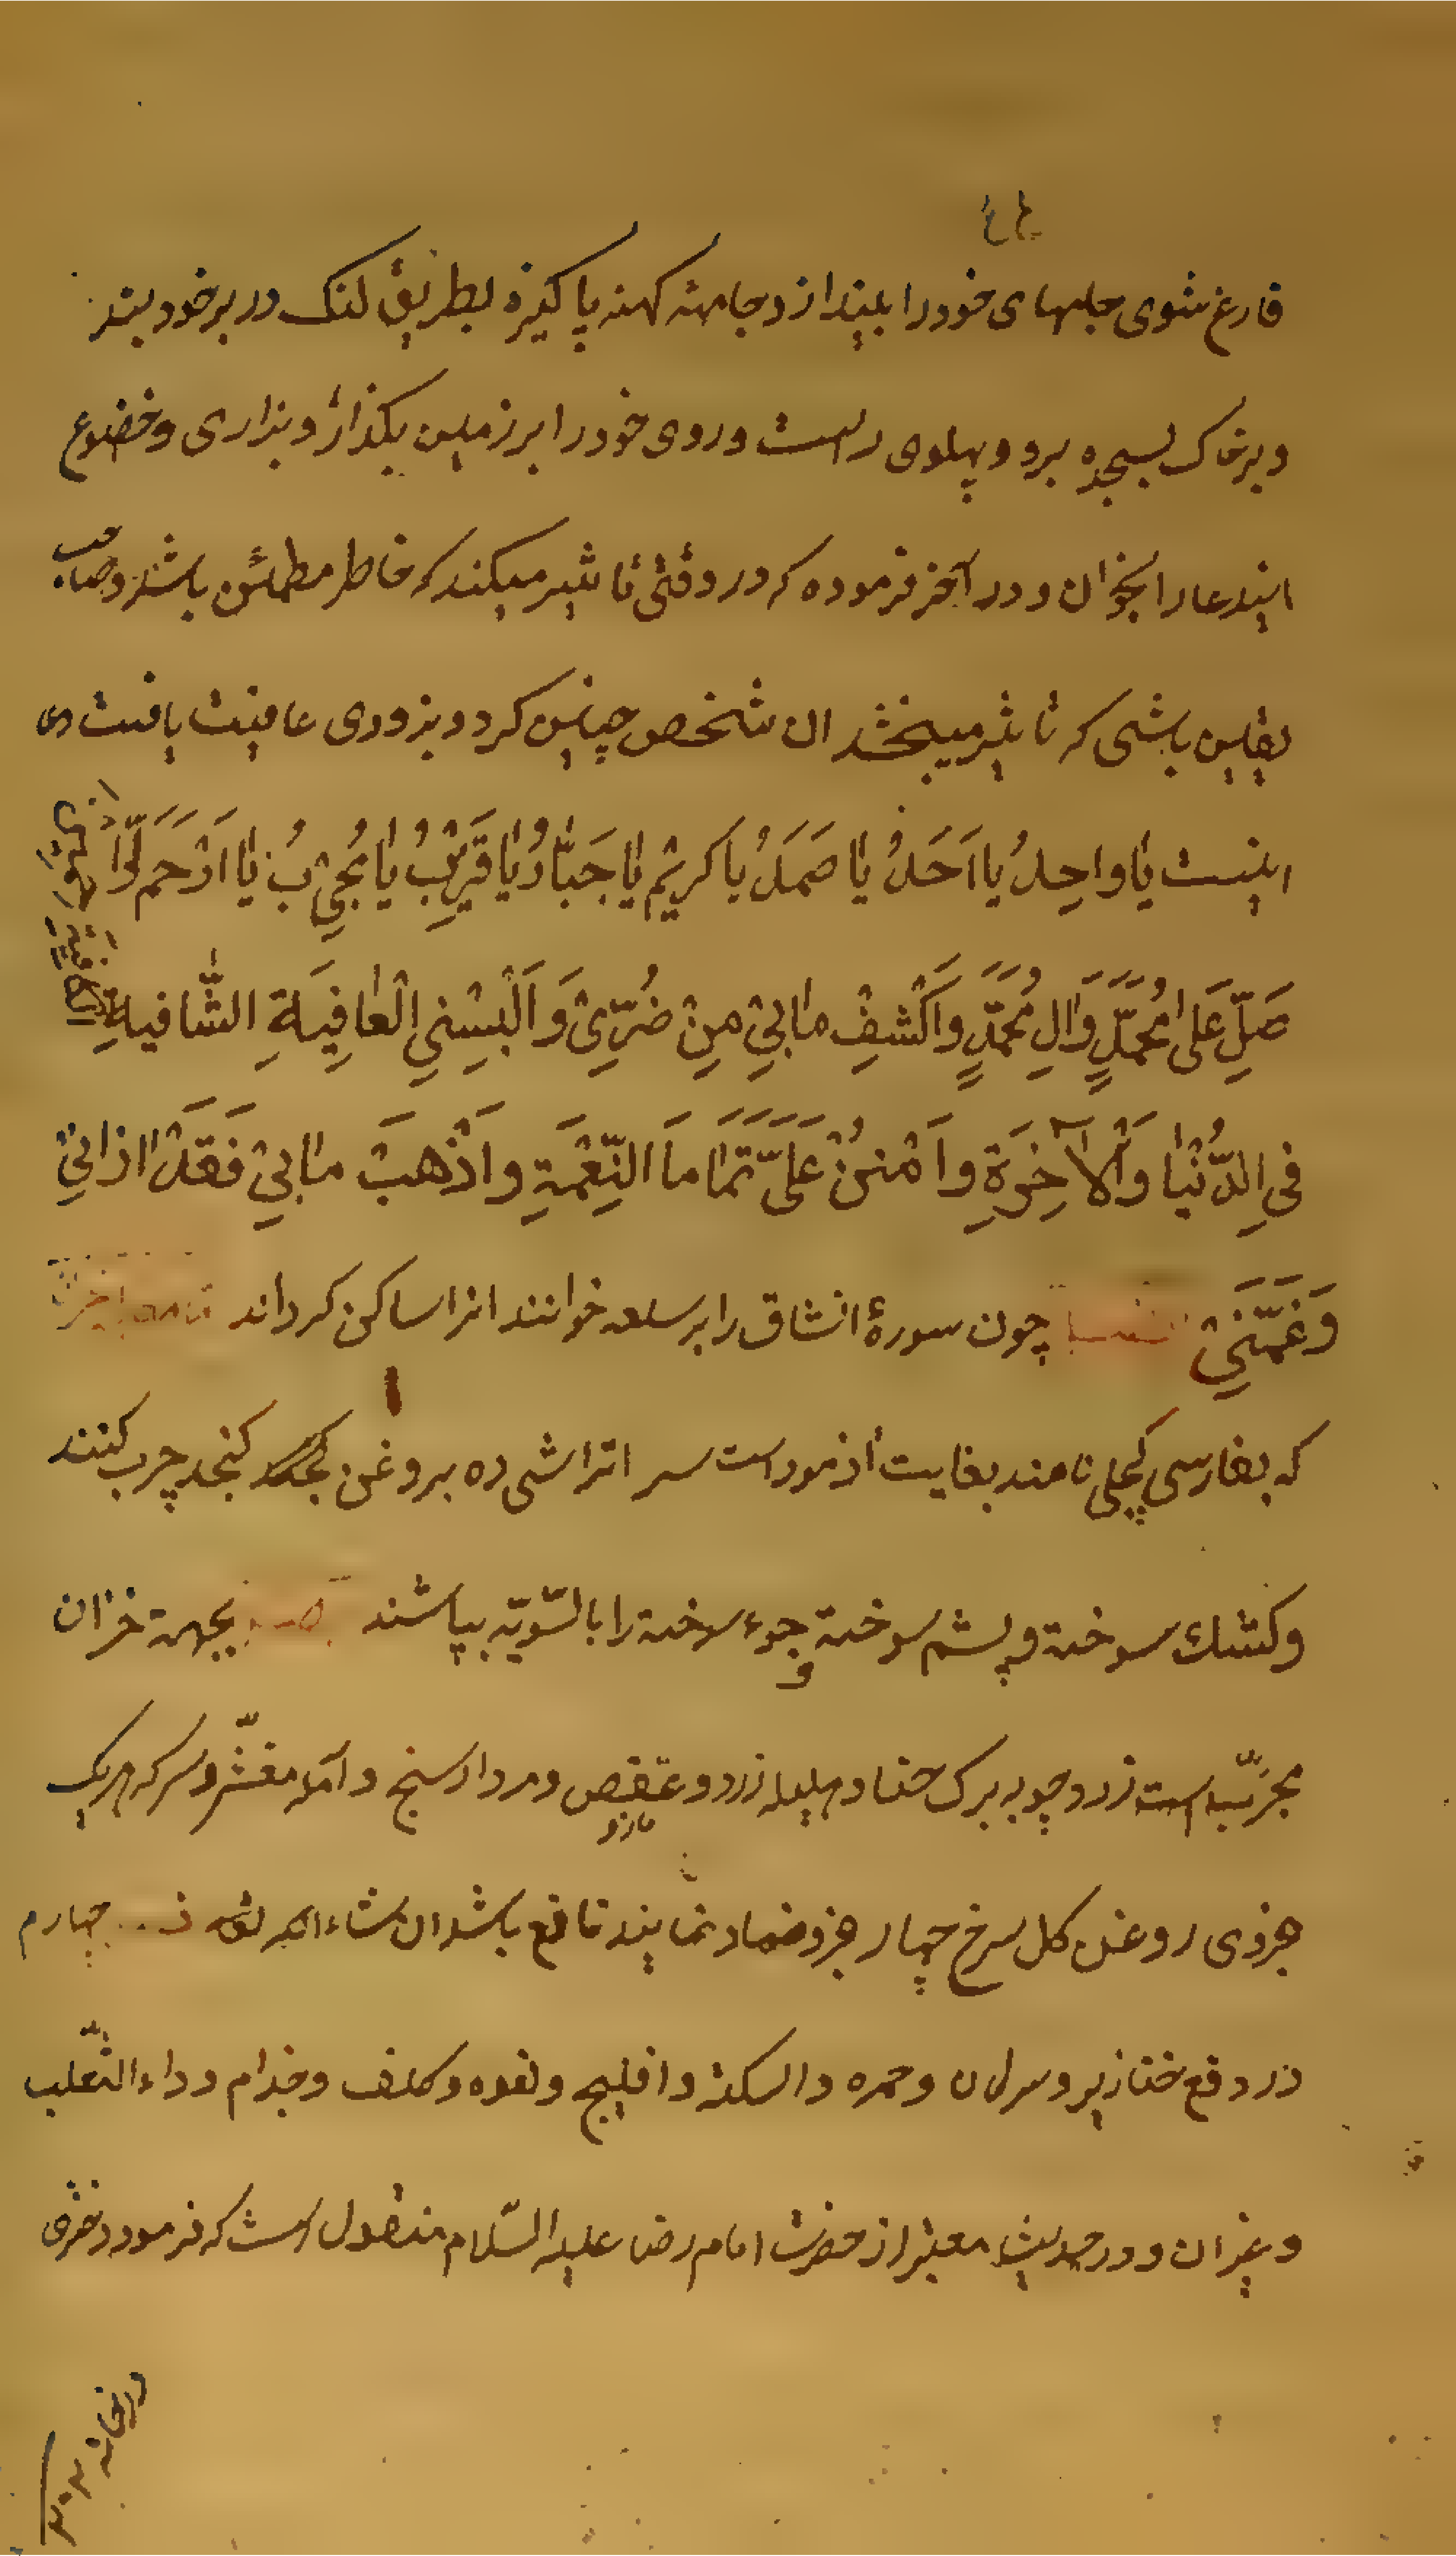 فارغ شوی جلهای خود را بینداز و جامه کهنه پاکیزه بطریق لنک در بر خود بند
و بر خاک بسجده برو و پهلوی راست و روی خود را بر زمین بگذار و بزاری و خضوع
ایندعا را بخوان و در آخر فرموده که در وقتی تاثیر میکند که خاطر مطمئن باشد و صاحب
یقین باشی که تاثیر میبخشد ان شخص چنین کرد و بزودی عافیت یافت دعا
اینست یٰا واحِدُ یا اَحَدُ یٰا صَمَدُ یا کریْم یٰا جَبّٰارُ یٰا قَرِیْبُ یٰا مُجیْبُ یٰا اَرْحَم
صَلِّ عَلیٰ مُحَمَّدٍ وَّاٰلِ مُحَمَّدٍ وَاَکْشِفْ مٰا بِیْ مِنْ ضُرّیْ وَ اَلْبِسْنِی الْعٰافِیَةِ الشّٰافیةِ
فیِ الدُّنْیٰا وَالْاٰخِرَةِ وامْنُنْ عَلَیَّ تَمٰامَ النِّعْمَةِ واَذْهَبْ مٰا بِیْ فَقَدْ اذٰانِیْ
وَغَمَّنِیْ چون سورهٔ انشقاق را بر سلعه خوانند انرا ساکن کرداند
که بفارسی کچلی نامند بغایت ازموداست سر را تراشی ده بروغن کنجد چرب کنند
و کشک سوخته و پشم سوخته و جوء سوخته را بالسّویّه بپاشند بجهة خزان
مجرّب است زردچوبه برک حنا و هلیله زرد و عفص و مردارسنج و آمله مقشّر و سرکه هریک
مازو
جزوی روغن کل سرخ چهار جزو ضماد نمایند نافع باشد ان شاء الله چهارم
در دفع خنازیر و سرطان و حمره و السکته و افلیج و لقوه و کلف و جذام و داء الثّعلب
و غیر ان و در حدیث معتبر از حضرت امام رضا علیه السّلام منقول است که فرمود دختری
در خانه